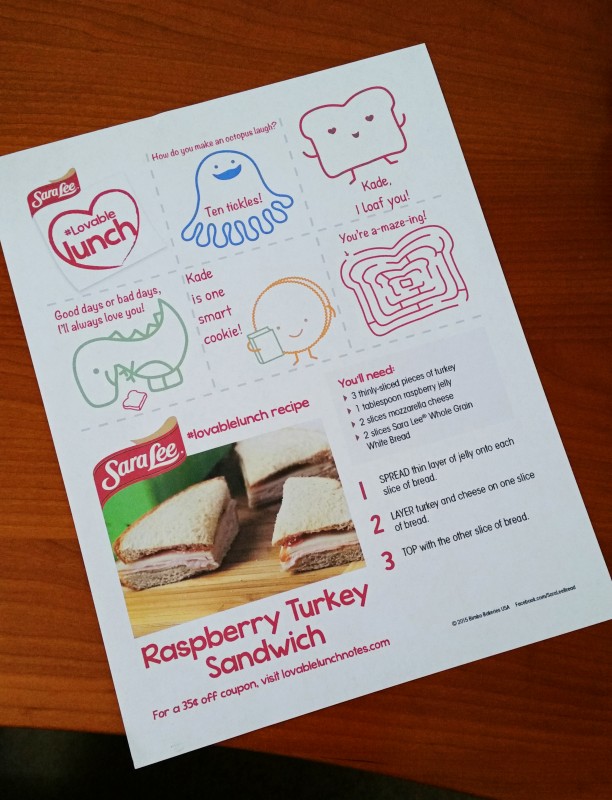 Sara Lee
#Lovable
lunch
How do you make an octopus laugh?
Ten tickles!
Kade,
I loaf you!
Good days or bad days,
I'll always love you!
Kade
is one
smart
cookie!
You're a-maze-ing!
Sara Lee
#lovablelunch recipe
You'll need:
3 thinly-sliced pieces of turkey
1 tablespoon raspberry jelly
2 slices mozzarella cheese
2 slices Sara Lee® Whole Grain
White Bread
1 SPREAD thin layer of jelly onto each
slice of bread.
2 LAYER turkey and cheese on one slice
of bread.
3 TOP with the other slice of bread.
Raspberry Turkey
Sandwich
For a 35¢ off coupon, visit lovablelunchnotes.com
© 2015 Bimbo Bakeries USA Facebook.com/SaraLeeBread